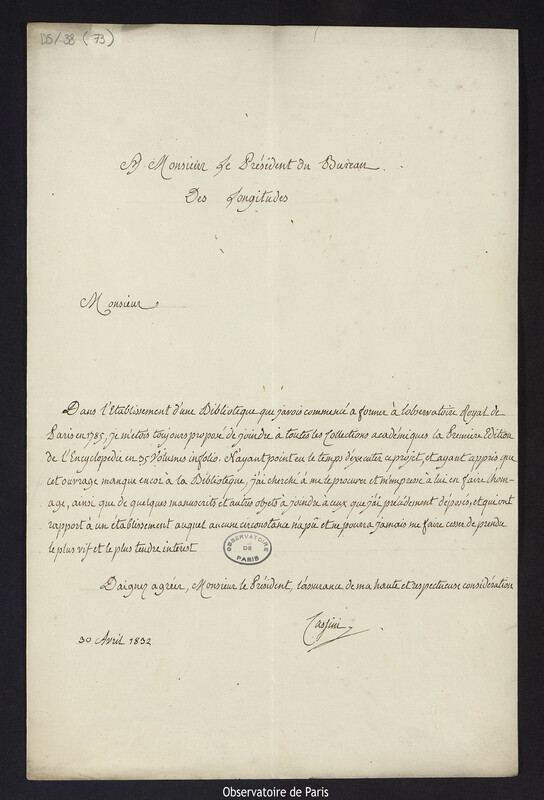 D5/38 (73)
A Monsieur Le Président du Bureau
Des Longitudes
Monsieur
Dans l'Etablissement d'une Bibliotèque que j'avois commencé a former à L'observatoire Royal de
Paris en 1785, je m'étois toujours proposé de joindre à toutes les Collections académiques la Premiere Edition
de l'Encyclopedie en 35 Volumes infolio. N'ayant point eu le temps d'executer ce projet, et ayant appris que
cet ouvrage manque encor a la Bibliotèque, j'ai cherché à me le procurer et m'empresse à lui en faire l'hom-
age, ainsi que de quelques manuscrits et autres objets à joindre à ceux que j'ai précédement déposés, et qui ont
rapport à un etablissement auquel aucune circonstance n'a pu et ne pourra jamais me faire cesser de prendre
le plus vif et le plus tendre interest
OBSERVATOIRE
DE
PARIS
Daignez agréer, Monsieur le Président, l'assurance de ma haute et respectueuse considération
Cassini
30 Avril 1832
Observatoire de Paris